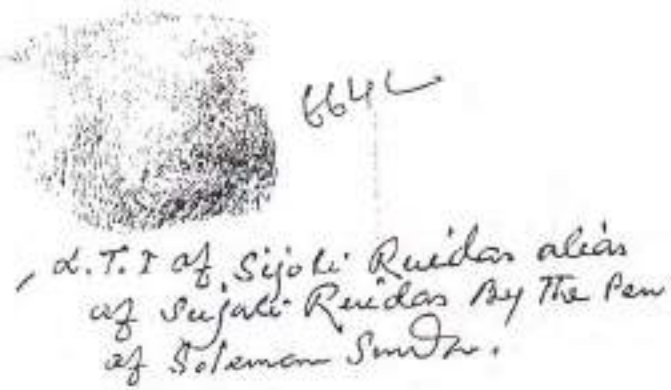 6642
L.T.I of Sijoki Ruidas alias
of Sujaki Ruidas By The Pen
of Soleman